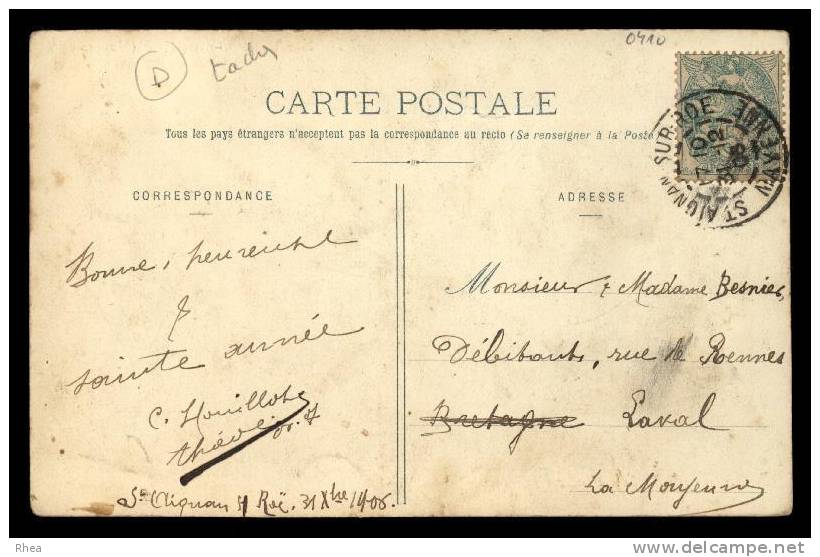 0410
D
CARTE POSTALE
Tous les pays étrangers n'acceptent pas la correspondance au recto (Se renseigner à la Poste)
CORRESPONDANCE
Bonne, heureuse
&
sainte année
C. Houillot
St Aignan s/ Roë. 31 Xbre 1906.
ADRESSE
Monsieur & Madame Besnier,
Débitants, rue de Rennes
Bretagne Laval
La Mayenne
ST AIGNAN SUR ROE
MAYENNE
Rhea
www.delcampe.net